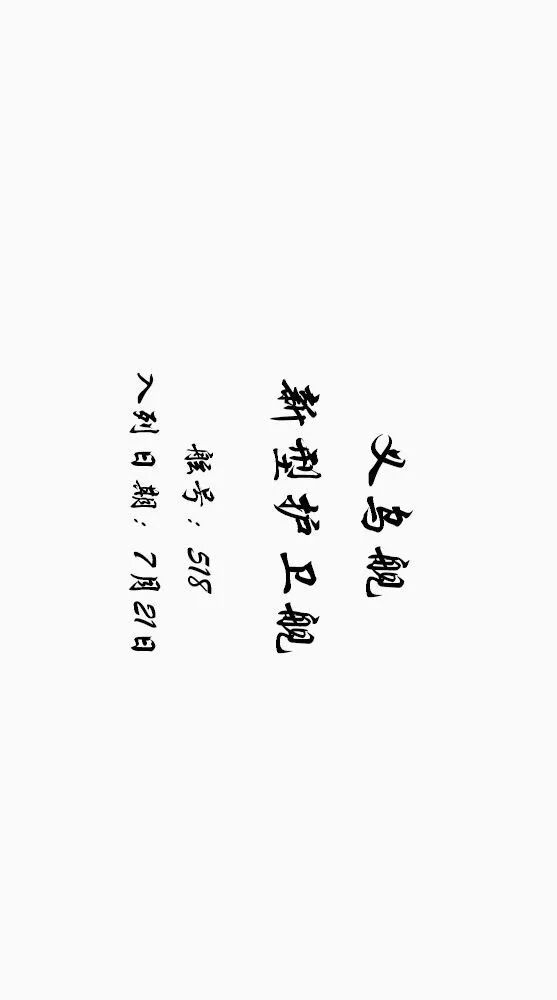 义乌舰
新型护卫舰
舷号：518
入列日期：7月21日